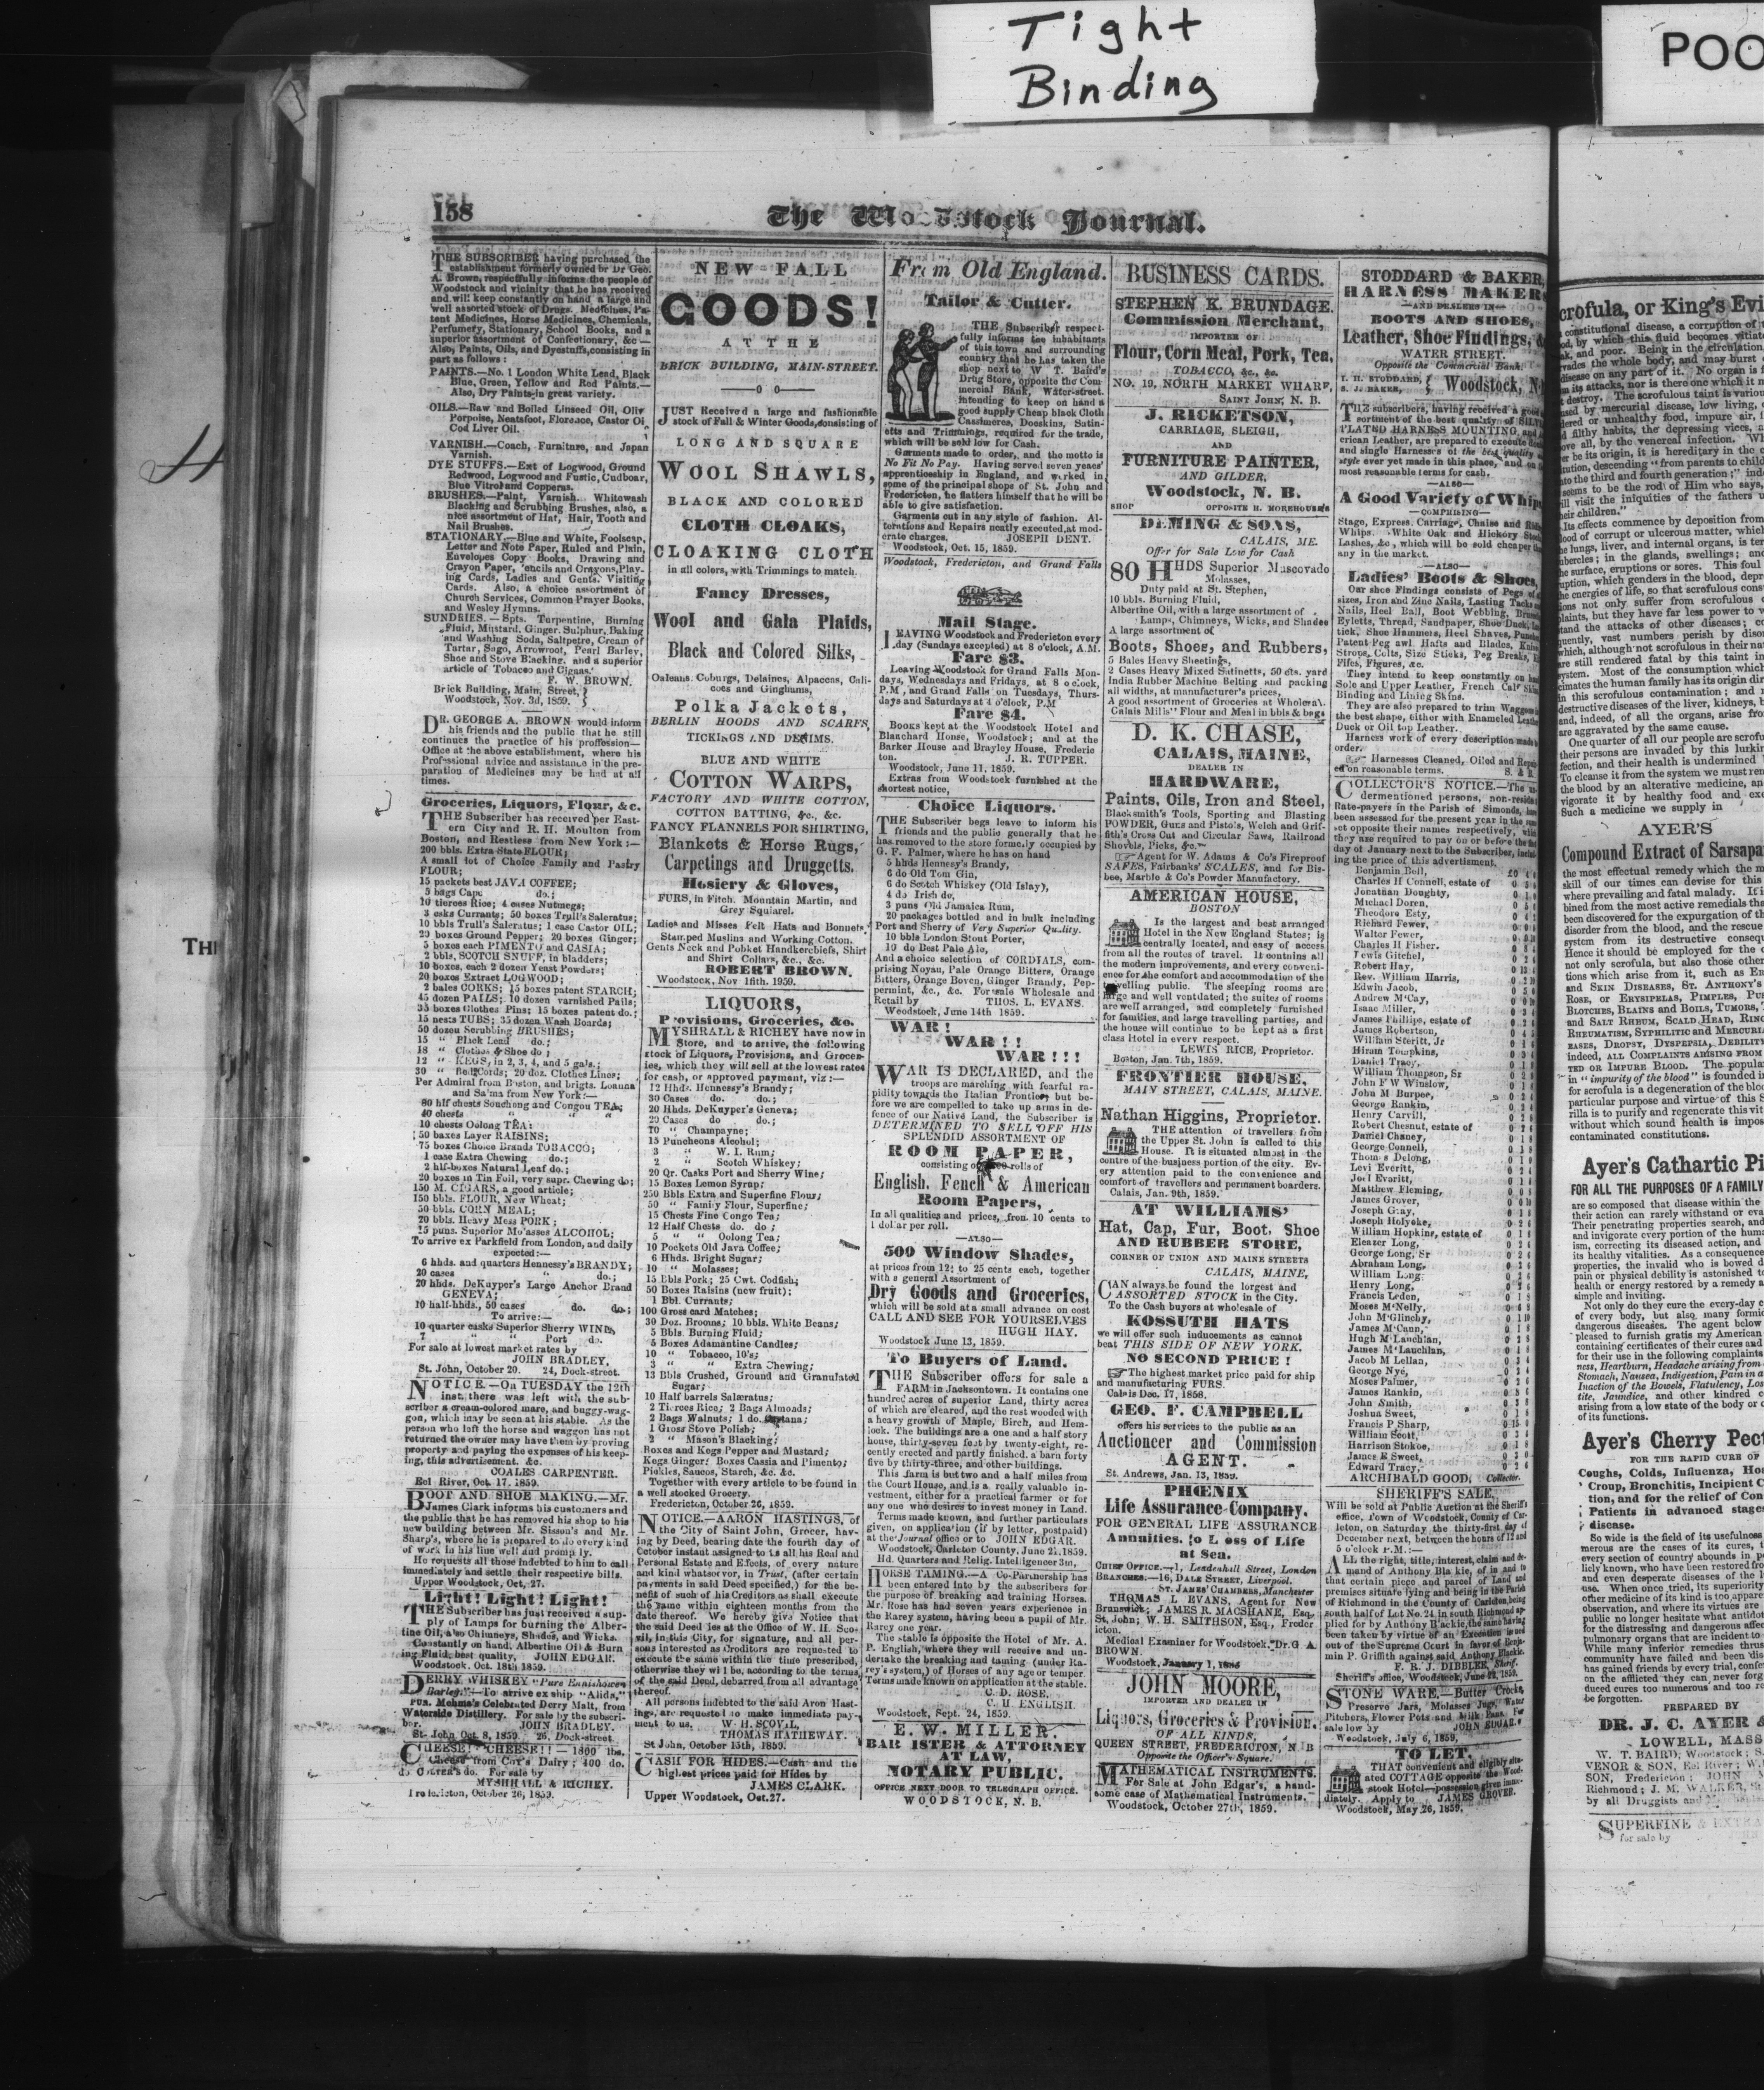 Tight
Binding
POO
158
The Woodstock Journal.
THE SUBSCRIBER having purchased the
establishment formerly owned by Dr Geo.
A. Brown, respectfully informs the people of
Woodstock and vicinity that he has received
and will keep constantly on hand a large and
well assorted stock of Drugs. Medicines, Pa-
tent Medicines, Horse Medicines, Chemicals,
Perfumery, Stationary, School Books, and a
superior assortment of Confectionary, &c —
Also, Paints, Oils, and Dyestuffs, consisting in
part as follows :
PAINTS.—No. 1 London White Lead, Black
Blue, Green, Yellow and Red Paints.—
Also, Dry Paints in great variety.
OILS.—Raw and Boiled Linseed Oil, Oliv
Porpoise, Neatsfoot, Florence, Castor Oi
Cod Liver Oil.
VARNISH.—Coach, Furniture, and Japan
Varnish.
DYE STUFFS.—Ext of Logwood, Ground
Redwood, Logwood and Fustic, Cudbear,
Blue Vitrol and Copperas.
BRUSHES.—Paint, Varnish. Whitewash
Blacking and Scrubbing Brushes, also, a
nice assortment of Hat, Hair, Tooth and
Nail Brushes.
STATIONARY.—Blue and White, Foolscap,
Letter and Note Paper, Ruled and Plain,
Envelopes Copy Books, Drawing and
Crayon Paper, Pencils and Crayons, Play-
ing Cards, Ladies and Gents. Visiting
Cards. Also, a choice assortment of
Church Services, Common Prayer Books,
and Wesley Hymns.
SUNDRIES.—Spts. Turpentine, Burning
Fluid, Mustard, Ginger. Sulphur, Baking
and Washing Soda, Saltpetre, Cream of
Tartar, Sago, Arrowroot, Pearl Barley,
Shoe and Stove Blacking, and a superior
article of Tobacco and Cigars.
F. W. BROWN.
Brick Building, Main, Street,
Woodstock, Nov. 3d, 1859.
DR. GEORGE A. BROWN would inform
his friends and the public that he still
continues the practice of his proffession—
Office at the above establishment, where his
Professional advice and assistance in the pre-
paration of Medicines may be had at all
times.
Groceries, Liquors, Flour, &c.
THE Subscriber has received per East-
ern City and R. H. Moulton from
Boston, and Restless from New York :—
200 bbls. Extra State FLOUR;
A small lot of Choice Family and Pastry
FLOUR;
15 packets best JAVA COFFEE;
5 bags Cape do.;
10 tierces Rice; 4 cases Nutmegs;
3 casks Currants; 50 boxes Trull's Saleratus;
10 bbls Trull's Saleratus; 1 case Castor OIL;
20 boxes Ground Pepper; 20 boxes Ginger;
5 boxes each PIMENTO and CASIA;
2 bbls. SCOTCH SNUFF, in bladders;
10 boxes, each 2 dozen Yeast Powders;
20 boxes Extract LOGWOOD;
2 bales CORKS; 15 boxes patent STARCH,
45 dozen PAILS; 10 dozen varnished Pails;
35 boxes Clothes Pins; 15 boxes patent do.;
15 nests TUBS; 35 dozen Wash Boards;
50 dozen Scrubbing BRUSHES;
15 " Black Lead do.;
18 " Clothes & Shoe do ;
12 " KEGS, in 2, 3, 4, and 5 gals.;
30 " Bed Cords; 20 doz. Clothes Lines;
Per Admiral from Boston, and brigts. Loanna
and Sa'ma from New York:—
80 hlf chests Souchong and Congou TEA;
40 chests " "
10 chests Oolong TEA:
50 boxes Layer RAISINS;
75 boxes Choice Brands TOBACCO;
1 case Extra Chewing do.;
2 hlf-boxes Natural Leaf do.;
20 boxes in Tin Foil, very supr. Chewing do;
150 M. CIGARS, a good article;
150 bbls. FLOUR, New Wheat;
50 bbls. CORN MEAL;
20 bbls. Heavy Mess PORK;
25 puns. Superior Molasses ALCOHOL;
To arrive ex Parkfield from London, and daily
expected:—
6 hhds. and quarters Hennessy's BRANDY;
20 cases do.;
20 hhds. DeKuyper's Large Anchor Brand
GENEVA;
10 half-hhds., 50 cases do. do.;
To arrive:—
10 quarter casks Superior Sherry WINE,
7 " " Port do.
For sale at lowest market rates by
JOHN BRADLEY,
St. John, October 20. 24, Dock-street.
NOTICE.—On TUESDAY the 12th
inst. there was left with the sub-
scriber a cream-colored mare, and buggy-wag-
gon, which may be seen at his stable. As the
person who left the horse and waggon has not
returned the owner may have them by proving
property and paying the expenses of his keep-
ing, this advertisement, &c.
COALES CARPENTER.
Eel River, Oct. 17. 1859.
BOOT AND SHOE MAKING.—Mr.
James Clark informs his customers and
the public that he has removed his shop to his
new building between Mr. Sisson's and Mr.
Sharp's, where he is prepared to do every kind
of work in his line well and promptly.
He requests all those indebted to him to call
immediately and settle their respective bills.
Upper Woodstock, Oct, 27.
Light! Light! Light!
THE Subscriber has just received a sup-
ply of Lamps for burning the Alber-
tine Oil, also Chimneys, Shades, and Wicks.
Constantly on hand, Albertine Oil & Burn
ing Fluid, best quality, JOHN EDGAR.
Woodstock, Oct. 18th 1859.
DERRY WHISKEY "Pure Ennishowen
Barley."—To arrive ex ship "Alida,"
pun. Mehma's Celebrated Derry Malt, from
Waterside Distillery. For sale by the subscri-
ber. JOHN BRADLEY.
St. John Oct. 8, 1859. 26, Dock-street.
CHEESE! CHEESE!! — 1800 lbs.
Cheese from Coy's Dairy; 400 do.
do. do. For sale by
MYSHRALL & RICHEY.
Fredericton, October 26, 1859.
NEW FALL
GOODS!
AT THE
BRICK BUILDING, MAIN-STREET.
0 0
JUST Received a large and fashionable
stock of Fall & Winter Goods, consisting of
LONG AND SQUARE
WOOL SHAWLS,
BLACK AND COLORED
CLOTH CLOAKS,
CLOAKING CLOTH
in all colors, with Trimmings to match.
Fancy Dresses,
Wool and Gala Plaids,
Black and Colored Silks,
Orleans. Coburgs, Delaines, Alpaccas, Cali-
coes and Ginghams,
Polka Jackets,
BERLIN HOODS AND SCARFS,
TICKINGS AND DENIMS.
BLUE AND WHITE
COTTON WARPS,
FACTORY AND WHITE COTTON,
COTTON BATTING, &c., &c.
FANCY FLANNELS FOR SHIRTING,
Blankets & Horse Rugs,
Carpetings and Druggetts.
Hosiery & Gloves,
FURS, in Fitch, Mountain Martin, and
Grey Squiarel.
Ladies and Misses Felt Hats and Bonnets.
Stamped Muslins and Working Cotton.
Gents Neck and Pobket Handkerchiefs, Shirt
and Shirt Collars, &c., &c.
ROBERT BROWN.
Woodstock, Nov 15th. 1959.
LIQUORS,
Provisions, Groceries, &c.
MYSHRALL & RICHEY have now in
Store, and to arrive, the following
stock of Liquors, Provisions, and Grocer-
ies, which they will sell at the lowest rates
for cash, or approved payment, viz :—
12 Hhdz. Hennessy's Brandy;
30 Cases do. do.;
20 Hhds. DeKuyper's Geneva;
20 Cases do do.;
70 " Champayne;
15 Puncheons Alcohol;
3 " W. I. Rum;
2 " Scotch Whiskey;
20 Qr. Casks Port and Sherry Wine;
15 Boxes Lemon Syrup;
250 Bbls Extra and Superfine Flour;
50 " Family Flour, Superfine;
15 Chests Fine Congo Tea;
12 Half Chests do. do ;
5 " " Oolong Tea;
10 Pockets Old Java Coffee;
6 Hhds. Bright Sugar;
10 " Molasses;
15 Bbls Pork; 25 Cwt. Codfish;
50 Boxes Raisins (new fruit);
1 Bbl. Currants;
100 Gross card Matches;
30 Doz. Brooms; 10 bbls. White Beans;
5 Bbls. Burning Fluid;
5 Boxes Adamantine Candles;
10 " Tobacco, 10's;
3 " " Extra Chewing;
13 Bbls Crushed, Ground and Granulated
Sugar;
10 Half barrels Saleratus;
2 Tierces Rice; 2 Bags Almonds;
2 Bags Walnuts; 1 do.
1 Gross Stove Polish;
2 " Mason's Blacking;
Boxes and Kegs Pepper and Mustard;
Kegs Ginger; Boxes Cassia and Pimento;
Pickles, Sauces, Starch, &c. &c.
Together with every article to be found in
a well stocked Grocery.
Fredericton, October 26, 1859.
NOTICE.—AARON HASTINGS, of
the City of Saint John, Grocer, hav-
ing by Deed, bearing date the fourth day of
October instant assigned to us all his Real and
Personal Estate and Efects, of every nature
and kind whatsoever, in Trust, (after certain
payments in said Deed specified,) for the be-
nefit of such of his Creditors as shall execute
the same within eighteen months from the
date thereof. We hereby give Notice that
the said Deed lies at the Office of W. H. Sco-
vil, in this City, for signature, and all per-
sons interested as Creditors are requested to
execute the same within the time prescribed,
otherwise they will be, according to the terms
of the said Deed, debarred from all advantage
thereof.
All persons indebted to the said Aron Hast-
ings, are requested to make immediate pay-
ment to us. W. H. SCOVIL,
THOMAS HATHEWAY.
St John, October 15th, 1859.
CASH FOR HIDES.—Cash and the
highest prices paid for Hides by
JAMES CLARK.
Upper Woodstock, Oct.27.
From Old England.
Tailor & Cutter.
THE Subscriber respect-
fully informs the inhabitants
of this town and surrounding
country that he has taken the
shop next to W T. Baird's
Drug Store, opposite the Com-
mercial Bank, Water-street.
intending to keep on hand a
good supply Cheap black Cloth
Cassimeres, Doeskins, Satin-
etts and Trimmings, required for the trade,
which will be sold low for Cash.
Garments made to order, and the motto is
No Fit No Pay. Having served seven years'
apprenticeship in England, and worked in
some of the principal shops of St. John and
Fredericton, he flatters himself that he will be
able to give satisfaction.
Garments cut in any style of fashion. Al-
terations and Repairs neatly executed, at mod-
erate charges. JOSEPH DENT.
Woodstock, Oct. 15, 1859.
Woodstock, Fredericton, and Grand Falls
Mail Stage.
LEAVING Woodstock and Fredericton every
day (Sundays excepted) at 8 o'clock, A.M.
Fare $3.
Leaving Woodstock for Grand Falls Mon-
days, Wednesdays and Fridays, at 8 o'clock,
P.M, and Grand Falls on Tuesdays, Thurs-
days and Saturdays at 4 o'clock, P.M
Fare $4.
Books kept at the Woodstock Hotel and
Blanchard House, Woodstock; and at the
Barker House and Brayley House, Frederic
ton. J. R. TUPPER.
Woodstock, June 11, 1859.
Extras from Woodstock furnished at the
shortest notice,
Choice Liquors.
THE Subscriber begs leave to inform his
friends and the public generally that he
has removed to the store formerly occupied by
G. F. Palmer, where he has on hand
5 hhds Hennesy's Brandy,
6 do Old Tom Gin,
6 do Scotch Whiskey (Old Islay),
4 do Irish do,
3 puns Old Jamaica Rum,
20 packages bottled and in bulk including
Port and Sherry of Very Superior Quality.
10 bbls London Stout Porter,
10 do Best Pale Ale,
And a choice selection of CORDIALS, com-
prising Noyau, Pale Orange Bitters, Orange
Bitters, Orange Boven, Ginger Brandy, Pep-
permint, &c., &c. For sale Wholesale and
Retail by THOS. L. EVANS.
Woodstock, June 14th 1859.
WAR!
WAR!!
WAR!!!
WAR IS DECLARED, and the
troops are marching with fearful ra-
pidity towards the Italian Frontier, but be-
fore we are compelled to take up arms in de-
fence of our Native Land, the Subscriber is
DETERMINED TO SELL OFF HIS
SPLENDID ASSORTMENT OF
ROOM PAPER,
consisting of rolls of
English, Fench & American
Room Papers,
In all qualities and prices, from 10 cents to
1 dollar per roll.
—ALSO—
500 Window Shades,
at prices from 12½ to 25 cents each, together
with a general Assortment of
Dry Goods and Groceries,
which will be sold at a small advance on cost
CALL AND SEE FOR YOURSELVES
HUGH HAY.
Woodstock June 13, 1859.
To Buyers of Land.
THE Subscriber offers for sale a
FARM in Jacksontown. It contains one
hundred acres of superior Land, thirty acres
of which are cleared, and the rest wooded with
a heavy growth of Maple, Birch, and Hem-
lock. The buildings are a one and a half story
house, thirty-seven feet by twenty-eight, re-
cently erected and partly finished, a barn forty
five by thirty-three, and other buildings.
This farm is but two and a half miles from
the Court House, and is a really valuable in-
vestment, either for a practical farmer or for
any one who desires to invest money in Land.
Terms made known, and further particulars
given, on application (if by letter, postpaid)
at the Journal office or to JOHN EDGAR.
Woodstock, Carleton County. June 21.1859.
Hd. Quarters and Relig. Intelligencer 3m,
HORSE TAMING.—A Co-Partnership has
been entered into by the subscribers for
the purpose of breaking and training Horses.
Mr. Rose has had seven years experience in
the Rarey system, having been a pupil of Mr.
Rarey one year.
The stable is opposite the Hotel of Mr. A.
P. English, where they will receive and un-
dertake the breaking and taming (under Ra-
rey's system,) of Horses of any age or temper.
Terms made known on application at the stable.
C. D. ROSE,
C. H. ENGLISH.
Woodstock, Sept. 24, 1859.
E. W. MILLER,
BARRISTER & ATTORNEY
AT LAW,
NOTARY PUBLIC.
OFFICE NEXT DOOR TO TELEGRAPH OFFICE.
WOODSTOCK, N. B.
BUSINESS CARDS.
STEPHEN K. BRUNDAGE.
Commission Merchant,
IMPORTER OF
Flour, Corn Meal, Pork, Tea,
TOBACCO, &c., &c.
NO. 19, NORTH MARKET WHARF,
SAINT JOHN, N. B.
J. RICKETSON,
CARRIAGE, SLEIGH,
AND
FURNITURE PAINTER,
AND GILDER,
Woodstock, N. B.
SHOP OPPOSITE H. MOREHOUSE'S
DEMING & SONS,
CALAIS, ME.
Offer for Sale Low for Cash
80 HHDS Superior Muscovado
Molasses,
Duty paid at St. Stephen,
10 bbls. Burning Fluid,
Albertine Oil, with a large assortment of
Lamps, Chimneys, Wicks, and Shades
A large assortment of
Boots, Shoes, and Rubbers,
5 Bales Heavy Sheetings,
2 Cases Heavy Mixed Satinetts, 50 cts. yard
India Rubber Machine Belting and packing
all widths, at manufacturer's prices,
A good assortment of Groceries at Wholesal.
Calais Mills' Flour and Meal in bbls & bags
D. K. CHASE,
CALAIS, MAINE,
DEALER IN
HARDWARE,
Paints, Oils, Iron and Steel,
Blacksmith's Tools, Sporting and Blasting
POWDER, Guns and Pistols, Welch and Grif-
fith's Cross Cut and Circular Saws, Railroad
Shovels, Picks, &c.
Agent for W. Adams & Co's Fireproof
SAFES, Fairbanks' SCALES, and for Bis-
bee, Marble & Co's Powder Manufactory.
AMERICAN HOUSE,
BOSTON
Is the largest and best arranged
Hotel in the New England States; is
centrally located, and easy of access
from all the routes of travel. It contains all
the modern improvements, and every conveni-
ence for the comfort and accommodation of the
travelling public. The sleeping rooms are
large and well ventdated; the suites of rooms
are well arranged, and completely furnished
for families, and large travelling parties, and
the house will continue to be kept as a first
class Hotel in every respect.
LEWIS RICE, Proprietor.
Boston, Jan. 7th, 1859.
FRONTIER HOUSE,
MAIN STREET, CALAIS, MAINE.
Nathan Higgins, Proprietor.
THE attention of travellers from
the Upper St. John is called to this
House. It is situated almost in the
centre of the business portion of the city. Ev-
ery attention paid to the convenience and
comfort of travellers and permanent boarders.
Calais, Jan. 9th, 1859.
AT WILLIAMS'
Hat, Cap, Fur, Boot, Shoe
AND RUBBER STORE,
CORNER OF UNION AND MAINE STREETS
CALAIS, MAINE,
CAN always be found the largest and
ASSORTED STOCK in the City.
To the Cash buyers at wholesale of
KOSSUTH HATS
we will offer such inducements as cannot
beat THIS SIDE OF NEW YORK.
NO SECOND PRICE!
The highest market price paid for ship
and manufacturing FURS.
Calais Dec. 17, 1858.
GEO. F. CAMPBELL
offers his services to the public as an
Auctioneer and Commission
AGENT.
St. Andrews, Jan. 13, 1859.
PHŒNIX
Life Assurance Company.
FOR GENERAL LIFE ASSURANCE
Annuities. to Loss of Life
at Sea.
CHIEF OFFICE.—1, Leadenhall Street, London
BRANCHES.—16, DALE STREET, Liverpool.
ST. JAMES' CHAMBERS, Manchester
THOMAS L EVANS, Agent for New
Brunswick; JAMES R. MACSHANE, Esq.,
St, John; W. H. SMITHSON, Esq., Freder
icton.
Medical Examiner for Woodstock, Dr. G A.
BROWN.
Woodstock, January 1,
JOHN MOORE,
IMPORTER AND DEALER IN
Liquors, Groceries & Provision.
OF ALL KINDS,
QUEEN STREET, FREDERICTON, N B
Opposite the Officer's Square.
MATHEMATICAL INSTRUMENTS.
For Sale at John Edgar's, a hand-
some case of Mathematical Instruments.
Woodstock, October 27th, 1859.
STODDARD & BAKER,
HARNESS MAKERS
—AND DEALERS IN—
BOOTS AND SHOES,
Leather, Shoe Findings, &
WATER STREET.
Opposite the Commercial Bank.
I. H. STODDARD,
S. J. BAKER,
Woodstock, N.
THE subscribers, having received a good
sortment of the best quality of SILVE
PLATED HARNESS MOUNTING, and
erican Leather, are prepared to execute
and single Harness of the best quality
style ever yet made in this place, and on
most reasonable terms for cash.
—ALSO—
A Good Variety of Whips
—COMPRISING—
Stage, Express, Carriage, Chaise and
Whips. White Oak and Hickory Stock
Lashes, &c, which will be sold cheaper
any in the market.
—ALSO—
Ladies' Boots & Shoes,
Our shoe Findings consists of Pegs of
sizes, Iron and Zinc Nails, Lasting Tacks
Nails, Heel Ball, Boot Webbing,
Eyletts, Thread, Sandpaper, Shoe Duck,
tick, Shoe Hammers, Heel Shaves,
Patent Peg awl Hafts and Blades,
Strops, Colts, Size Sticks, Peg Breaks,
Files, Figures, &c.
They intend to keep constantly on
Sole and Upper Leather, French Calf Skin
Binding and Lining Skins.
They are also prepared to trim Waggons
the best shape, either with Enameled Leather
Duck or Oil top Leather.
Harness work of every description made to
order.
Harnesses Cleaned, Oiled and
ed on reasonable terms. S. & B.
COLLECTOR'S NOTICE.—The
dermentioned persons, non-resident
Rate-payers in the Parish of Simonds,
been assessed for the present year in the sums
set opposite their names respectively, which
they are required to pay on or before the
day of January next to the Subscriber,
ing the price of this advertisment.
Benjamin Bell,
Charles H Connell, estate of
Jonathan Doughty,
Michael Doren,
Theodore Esty,
Richard Fewer,
Walter Fewer,
Charles H Fisher.
Lewis Gitchel,
Robert Hay,
Rev. William Harris,
Edwin Jacob,
Andrew M'Cay,
Isaac Miller,
James Phillips, estate of
James Robertson,
William Steritt, Jr
Hiram Tompkins,
Daniel Tracy,
William Thompson, Sr
John F W Winslow,
John M Burpee,
George Rankin,
Henry Carvill,
Robert Chesnut, estate of
Daniel Chaney,
George Connell,
Thomas Delong,
Levi Everitt,
Joel Everitt,
Matthew Fleming,
Joseph Gray,
Joseph Holyoke,
William Hopkins, estate of
Eleazer Long,
George Long, Sr
Abraham Long,
William Long
Henry Long,
Francis Leden,
Moses M'Nelly,
John M'Glinchy,
James M'Cann,
Hugh M'Lauchlan,
James M'Lauchlan,
Jacob M Lellan,
George Nye,
Moses Palmer,
James Rankin,
John Smith,
Joshua Sweet,
Francis P Sharp,
William Scott,
Harrison Stokoe,
James R Sweet,
Edward Tracy,
ARCHIBALD GOOD, Collector.
SHERIFF'S SALE.
Will be sold at Public Auction at the Sheriff's
office, Town of Woodstock, County of Car-
leton, on Saturday the thirty-first day of
December next, between the hours of 12 and
5 o'clock P.M.:—
ALL the right, title, interest, claim and de-
mand of Anthony Blackie, of, in and to
that certain piece and parcel of Land and
premises situate lying and being in the Parish
of Richmond in the County of Carleton, being
south half of Lot No. 24, in south Richmond ap-
plied for by Anthony Blackie, the same having
been taken by virtue of an Execution issued
out of the Supreme Court in favor of Benja-
min P. Griffith against said Anthony Blackie.
F. R. J. DIBBLEE, Sheriff.
Sheriff's office, Woodstock, June 22, 1859.
STONE WARE.—Butter Crocks,
Preserve Jars, Molasses Jugs, Water
Pitchers, Flower Pots and Milk Pans. For
sale low by JOHN EDGAR.
Woodstock, July 6, 1859.
TO LET.
THAT convenient and eligibly situ-
ated COTTAGE opposite the Wood-
stock Hotel—possession given imme-
diately. Apply to JAMES GROVER.
Woodstock, May 26, 1859.
crofula, or King's Evi
constitutional disease, a corruption of
by which this fluid becomes vitiate
and poor. Being in the circulation
vades the whole body, and may burst
disease on any part of it. No organ is f
its attacks, nor is there one which it m
destroy. The scrofulous taint is variou
used by mercurial disease, low living,
dered or unhealthy food, impure air, f
filthy habits, the depressing vices, a
ove all, by the venereal infection. Wh
er be its origin, it is hereditary in the c
tution, descending "from parents to child
to the third and fourth generation;" inde
seems to be the rod of Him who says,
ill visit the iniquities of the fathers u
heir children."
Its effects commence by deposition from
lood of corrupt or ulcerous matter, whic
he lungs, liver, and internal organs, is ter
ubercles; in the glands, swellings; and
he surface, eruptions or sores. This foul
uption, which genders in the blood, depr
he energies of life, so that scrofulous cons
ions not only suffer from scrofulous c
plaints, but they have far less power to w
tand the attacks of other diseases; co
quently, vast numbers perish by disor
which, although not scrofulous in their nat
are still rendered fatal by this taint in
ystem. Most of the consumption which
cimates the human family has its origin dir
in this scrofulous contamination; and
destructive diseases of the liver, kidneys, b
and, indeed, of all the organs, arise from
are aggravated by the same cause.
One quarter of all our people are scrofu
their persons are invaded by this lurkin
fection, and their health is undermined
To cleanse it from the system we must ren
the blood by an alterative medicine, an
vigorate it by healthy food and exe
Such a medicine we supply in
AYER'S
Compound Extract of Sarsapa
the most effectual remedy which the m
skill of our times can devise for this
where prevailing and fatal malady. It i
bined from the most active remedials tha
been discovered for the expurgation of th
disorder from the blood, and the rescue
system from its destructive consequ
Hence it should be employed for the c
not only scrofula, but also those other
tions which arise from it, such as ER
and SKIN DISEASES, ST. ANTHONY'S
ROSE, or ERYSIPELAS, PIMPLES, PU
BLOTCHES, BLAINS and BOILS, TUMORS,
and SALT RHEUM, SCALD HEAD, RING
RHEUMATISM, SYPHILITIC and MERCURI
EASES, DROPSY, DYSPEPSIA, DEBILITY
indeed, ALL COMPLAINTS ARISING FROM
TED OR IMPURE BLOOD. The popula
in "impurity of the blood" is founded i
for scrofula is a degeneration of the bloo
particular purpose and virtue of this S
rilla is to purify and regenerate this vit
without which sound health is impos
contaminated constitutions.
Ayer's Cathartic Pi
FOR ALL THE PURPOSES OF A FAMILY
are so composed that disease within the
their action can rarely withstand or eva
Their penetrating properties search, and
and invigorate every portion of the huma
ism, correcting its diseased action, and
its healthy vitalities. As a consequence
properties, the invalid who is bowed d
pain or physical debility is astonished to
health or energy restored by a remedy a
simple and inviting.
Not only do they cure the every-day c
of every body, but also many formid
dangerous diseases. The agent below
pleased to furnish gratis my American
containing certificates of their cures and
for their use in the following complaints
ness, Heartburn, Headache arising from
Stomach, Nausea, Indigestion, Pain in a
Inaction of the Bowels, Flatulency, Los
tite, Jaundice, and other kindred c
arising from a low state of the body or o
of its functions.
Ayer's Cherry Pect
FOR THE RAPID CURE OF
Coughs, Colds, Influenza, Hoa
Croup, Bronchitis, Incipient C
tion, and for the relief of Con
Patients in advanced stages
disease.
So wide is the field of its usefulness
merous are the cases of its cures, t
every section of country abounds in p
licly known, who have been restored fro
and even desperate diseases of the l
use. When once tried, its superiority
other medicine of its kind is too appare
observation, and where its virtues are
public no longer hesitate what antidot
for the distressing and dangerous affec
pulmonary organs that are incident to
While many inferior remedies thrus
community have failed and been dis
has gained friends by every trial, confer
on the afflicted they can never forg
duced cures too numerous and too re
be forgotten.
PREPARED BY
DR. J. C. AYER &
LOWELL, MASS
W. T. BAIRD, Woodstock; S.
VENOR & SON, Eel River; W.
SON, Fredericton; JOHN
Richmond; J. M. WALKER,
by all Druggists and
SUPERFINE & EXTRA
for sale by